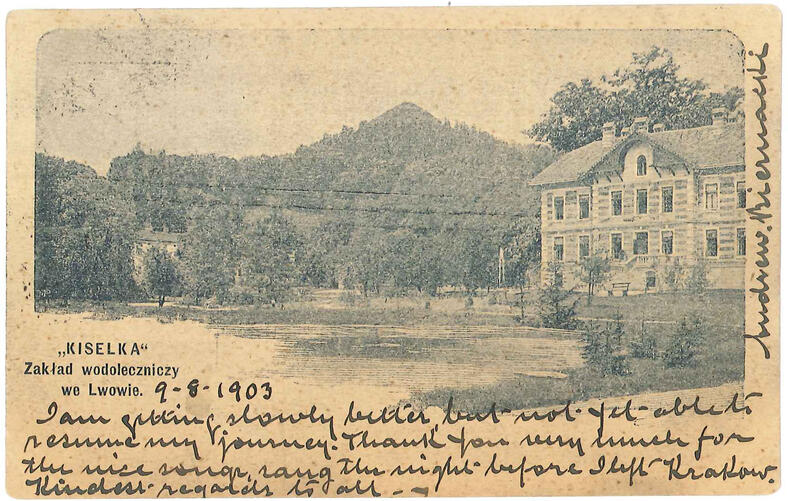 „KISELKA“
Zakład wodoleczniczy
we Lwowie. 9-8-1903
I am getting slowly better, but not yet able to
resume my journey. Thank you very much for
the nice songs, sang the night before I left Krakow.
Kindest regards to all. —
Andrew. Biernacki